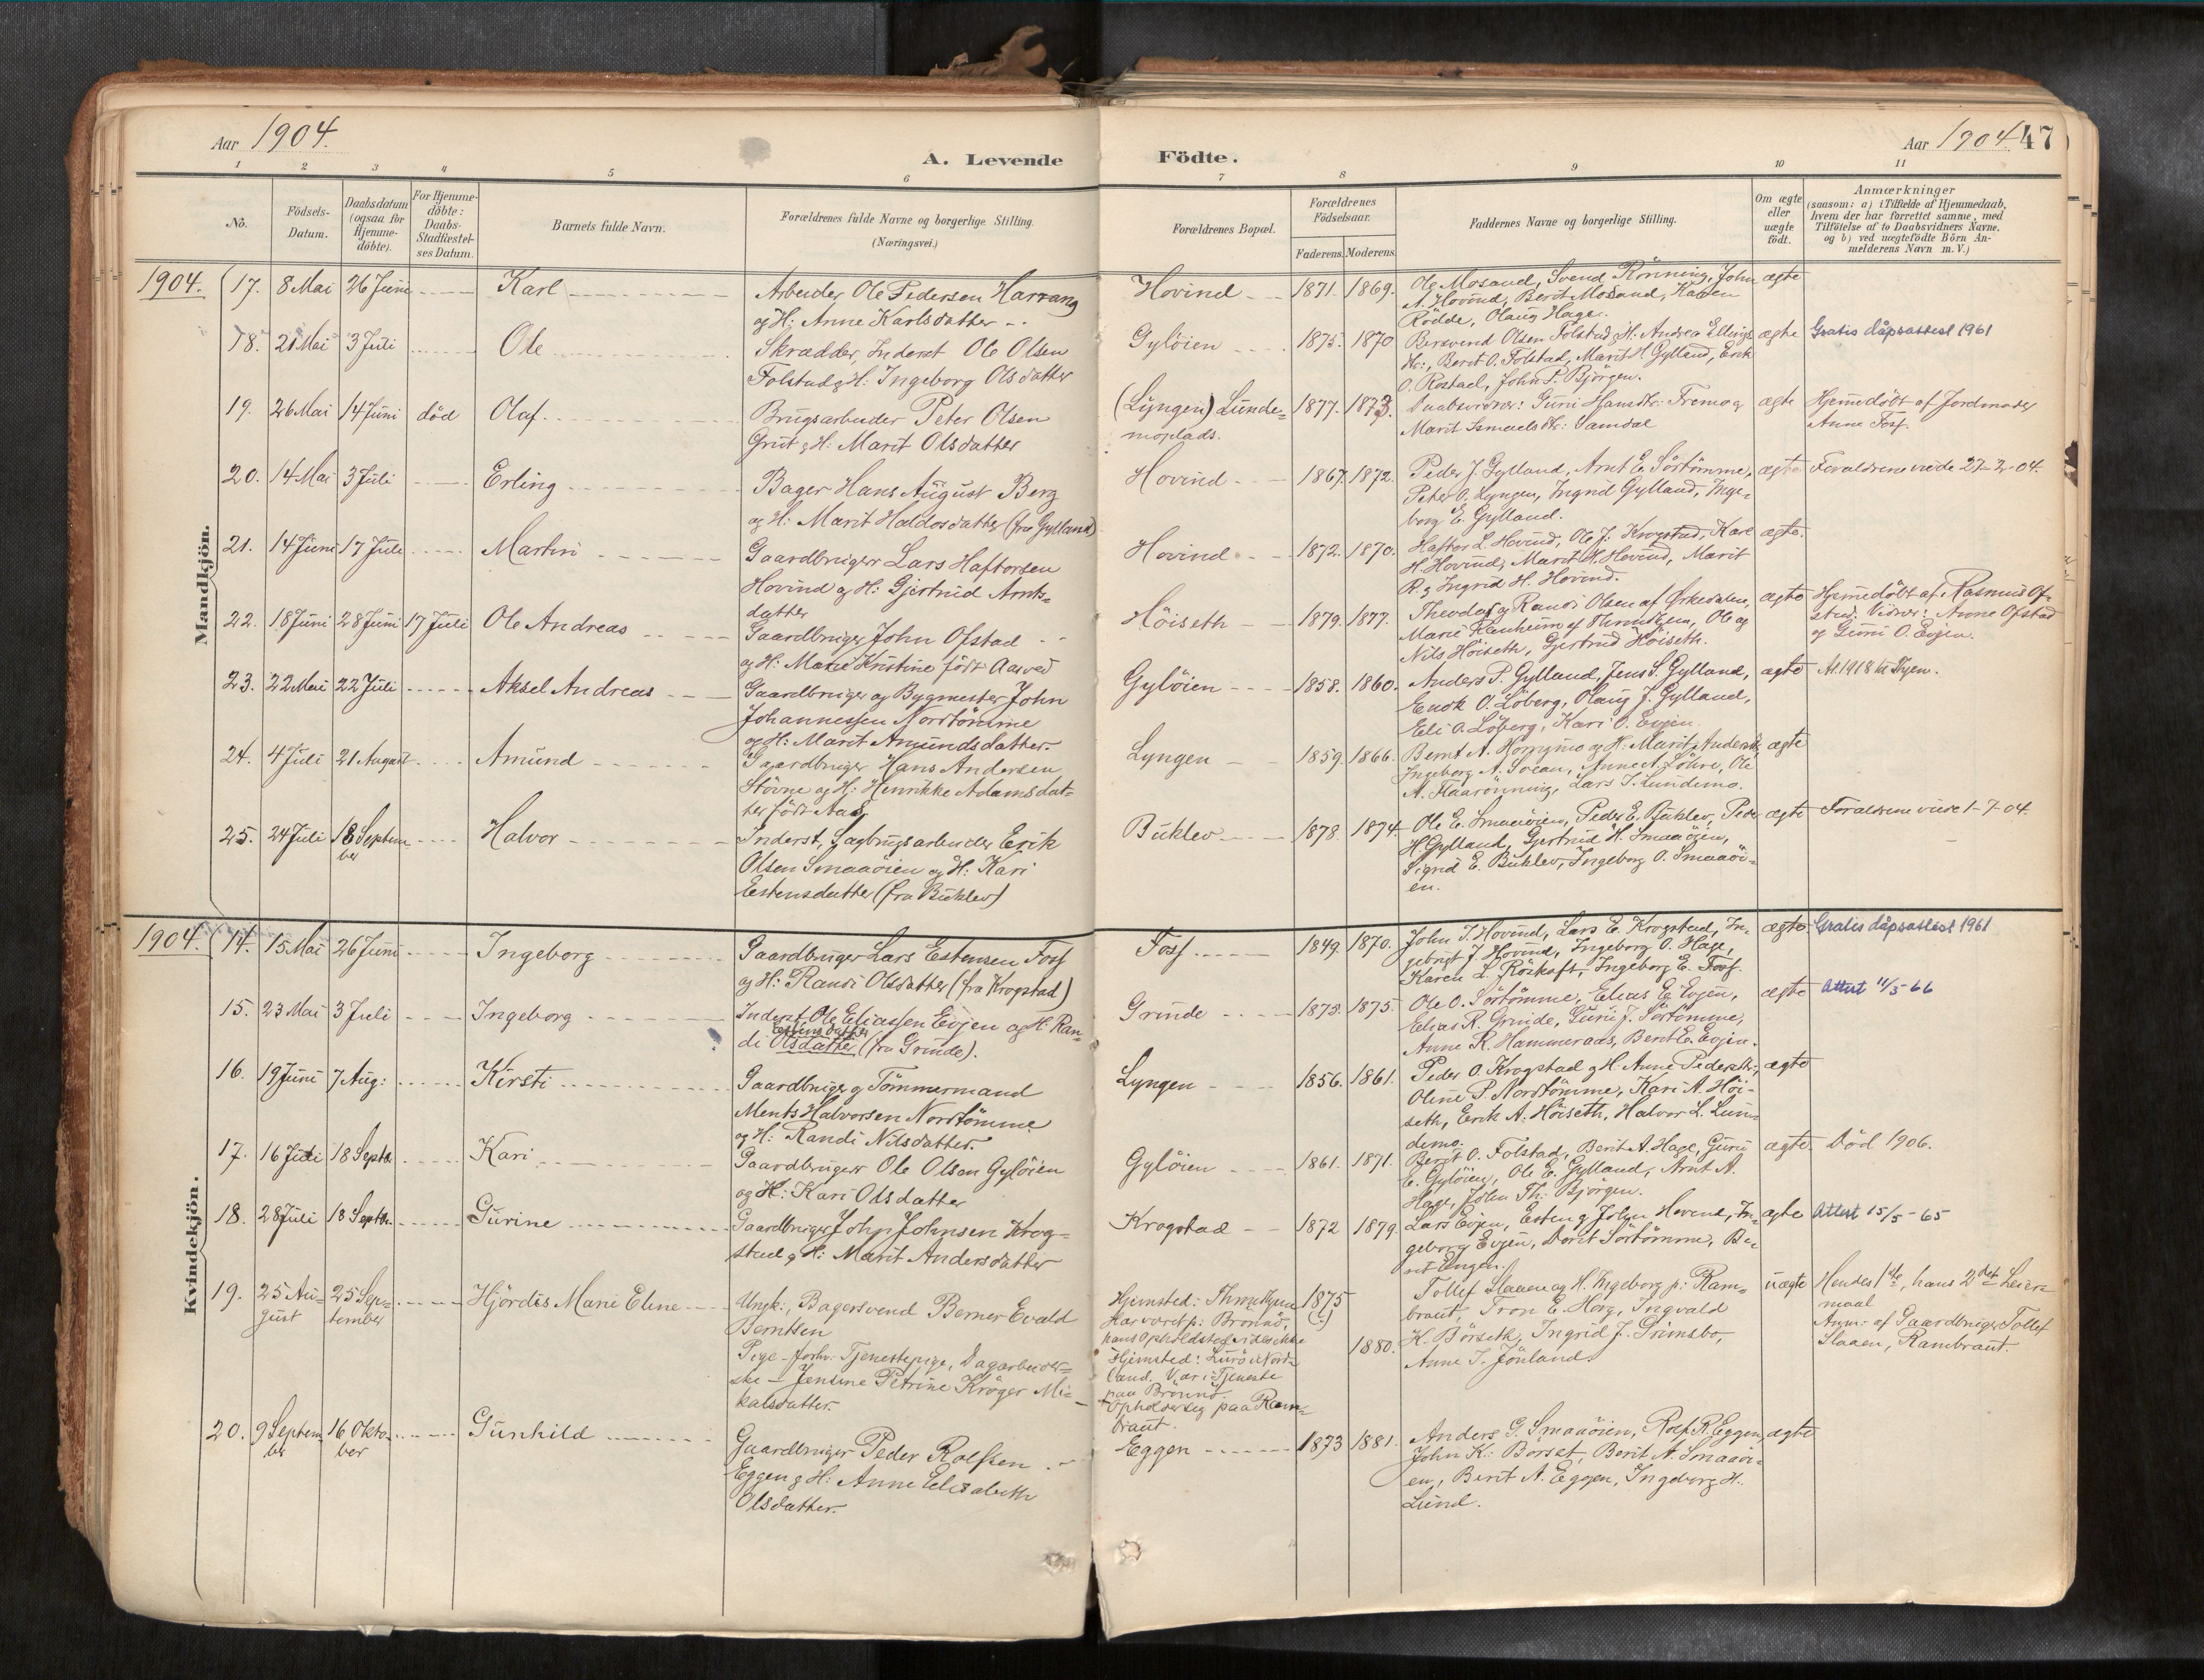 Aar 1904.
A. Levende
Födte.
Aar 1904. 47
1 2 3 4 5 6 7 8 9 10 11
No.
Födsels-Datum.
Daabsdatum (ogsaa for Hjemme-döbte).
For Hjemme-döbte: Daabs-Stadfæstel-ses Datum.
Barnets fulde Navn.
Forældrenes fulde Navne og borgerlige Stilling. (Næringsvei.)
Forældrenes Bopæl.
Forældrenes Födselsaar.
Faderens. Moderens.
Faddernes Navne og borgerlige Stilling.
Om ægte eller uægte födt.
Anmærkninger
(saasom: a) i Tilfælde af Hjemmedaab, hvem der har forrettet samme, med Tilföielse af to Daabsvidners Navne, og b) ved uægtefödte Börn An-melderens Navn m.V.)
Mandkjön.
1904. 17. 8 Mai 26 Juni Karl
Arbeider Ole Pedersen Harrang
og H: Anne Karlsdatter
Hovind 1871. 1869.
Ole Mosand, Svend Rönning, John
A. Hovind, Berit Mosand, Karen
Rödde, Olaug Hage.
ægte
18. 21 Mai 3 Juli Ole
Skrædder, Inderst Ole Olsen
Folstad og H: Ingeborg Olsdatter
Gylöien 1875. 1870
Bersvend Olsen Folstad og H: Andrea Ellings
dtr:, Berit O. Folstad, Marit H. Gylland, Erik
O. Rostad, John P. Björgen.
ægte Gratis dåpsattest 1961
19. 26 Mai 14 Juni död Olaf
Brugsarbeider Peter Olsen
Grut og H: Marit Olsdatter
(Lyngen) Lunde=
moplads. 1877. 1873.
Daabsvidner: Guri Hansdtr: Fremo og
Marit Ismaelsdtr: Samdal
ægte Hjemmedöbt af Jordmoder
Anne Foss.
20. 14 Mai 3 Juli Erling
Bager Hans August Berg
og H: Marit Haldosdatter (fra Gylland)
Hovind 1867. 1872.
Peder J. Gylland, Arnt E. Sörtömme,
Peter O. Lyngen, Ingrid Gylland, Inge-
borg E. Gylland.
ægte Forældrene viede 27-2-04.
21. 14 Juni 17 Juli Martin
Gaardbruger Lars Haftorsen
Hovind og H: Gjertrud Arnts=
datter
Hovind 1872. 1870.
Haftor L. Hovind, Ole J. Krogstad, Karl
H. Hovind, Marit H. Hovind, Marit
R. og Ingrid H. Hovind.
ægte.
22. 18 Juni 28 Juni 17 Juli Ole Andreas
Gaardbruger John Ofstad
og H: Marie Kristine födt Aasved
Höiseth 1879. 1877.
Theodor og Randi Olsen af Orkedalen,
Marie Klenheim af Throndhjem, Ole og
Nils Höiseth, Gjertrud Höiseth.
ægte Hjemmedöbt af Rasmus Of-
stad. Vidner: Anne Ofstad
og Guri O. Evjen.
23. 22 Mai 22 Juli Aksel Andreas
Gaardbruger og Bygmester John
Johannessen Nordtömme
og H: Marit Amundsdatter.
Gylöien 1858. 1860.
Anders P. Gylland, Jens S. Gylland,
Enok O. Löberg, Olaug J. Gylland,
Eli A. Löberg, Kari O. Evjen.
ægte At. 1918 til Thjem.
24. 4 Juli 21 August Amund
Gaardbruger Hans Andersen
Stövne og H: Henrikke Adamsdat=
ter födt Aas.
Lyngen 1859. 1866.
Bernt A. og H: Marit Andersdtr,
Ingeborg A. Svean, Anne A. Löhre, Ole
A. Haarönning, Lars I. Lundemo.
ægte
25. 24 Juli 18 Septem-
ber Halvor
Inderst, Sagbrugsarbeider Erik
Olsen Smaaöien og H: Kari
Estensdatter (fra Buklev)
Buklev 1878. 1874.
Ole E. Smaaöien, Peder E. Buklev, Peder
H. Gylland, Gjertrud H. Smaaöien,
Sigrid E. Buklev, Ingeborg O. Smaaöi-
en.
ægte Forældrene viede 1-7-04.
Kvindekjön.
1904. 14. 15 Mai 26 Juni Ingeborg
Gaardbruger Lars Estensen Foss
og H: Randi Olsdatter (fra Krogstad)
Foss 1849. 1870.
John I. Hovind, Lars E. Krogstad, In-
gebrigt J. Hovind, Ingeborg O. Hage,
Karen L. Röskaft, Ingeborg E. Foss.
ægte. Gratis dåpsattest 1961
15. 23 Mai 3 Juli Ingeborg
Inderst Ole Eliassen Evjen og H: Ran-
Estensdatter
di Olsdatter (fra Grinde).
Grinde 1873. 1875.
Ole O. Sörtömme, Elias E. Evjen,
Elias R. Grinde, Guri J. Sörtömme,
Anne K. Hammeraas, Berit E. Evjen.
ægte Attest 11/5 66
16. 19 Juni 7 Aug: Kirsti
Gaardbruger og Tömmermand
Ments Halvorsen Nordtömme
og H: Randi Nilsdatter.
Lyngen 1856. 1861.
Peder O. Krogstad og H: Anne Pedersdtr,
Oline P. Nordtömme, Kari A. Höi-
seth, Erik A. Höiseth, Halvor L. Lun-
demo.
ægte
17. 16 Juli 18 Septbr Kari
Gaardbruger Ole Olsen Gylöien
og H: Kari Olsdatter
Gylöien 1861. 1871.
Berit O. Folstad, Berit A. Hage, Guru
E. Gylöien, Ole E. Gylland, Arnt A.
Hage, John Th: Björgen.
ægte. Död 1906.
18. 28 Juli 18 Septbr. Gurine
Gaardbruger John Johnsen Krog=
stad og H: Marit Andersdatter
Krogstad 1872 1879.
Lars Evjen, Esten og John Hovind, In-
geborg Evjen, Dorit Sörtömme, Be-
rit Engen.
ægte Attest 15/5 - 65
19. 25 Au-
gust 25 Sep-
tember Hjördis Marie Eline
Ungk:, Bagersvend Berner Evald
Berntsen
Pige - forhv: Tjenestepige, Dagarbeider-
ske - Jensine Petrine Kröger Mi-
kalsdatter.
Hjemsted: Thrmhjem
Har været p: Brönnö,
hans Opholdssted vides ikke
Hjemsted: Lurö i Nord-
land. Var i Tjeneste
paa Brönnö.
Opholder sig paa Ram-
braut.
1875
(?)
1880.
Tollef Slaaen og H. Ingeborg p: Ram-
braut, Tron E. Horg, Ingvald
K. Börseth, Ingrid J. Grimsbo,
Anne I. Jönland.
uægte Hendes 1ste, hans 2det Leier-
maal
Anm: af Gaardbruger Tollef
Slaaen, Rambraut.
20. 9 Septem-
ber 16 Okto-
ber Gunhild
Gaardbruger Peder Rolfsen
Eggen og H: Anne Elisabeth
Olsdatter.
Eggen 1873 1881.
Anders G. Smaaöien, Rolf R. Eggen,
John K: Börset, Berit A. Smaaöi-
en, Berit A. Eggen, Ingeborg H.
Lund.
ægte